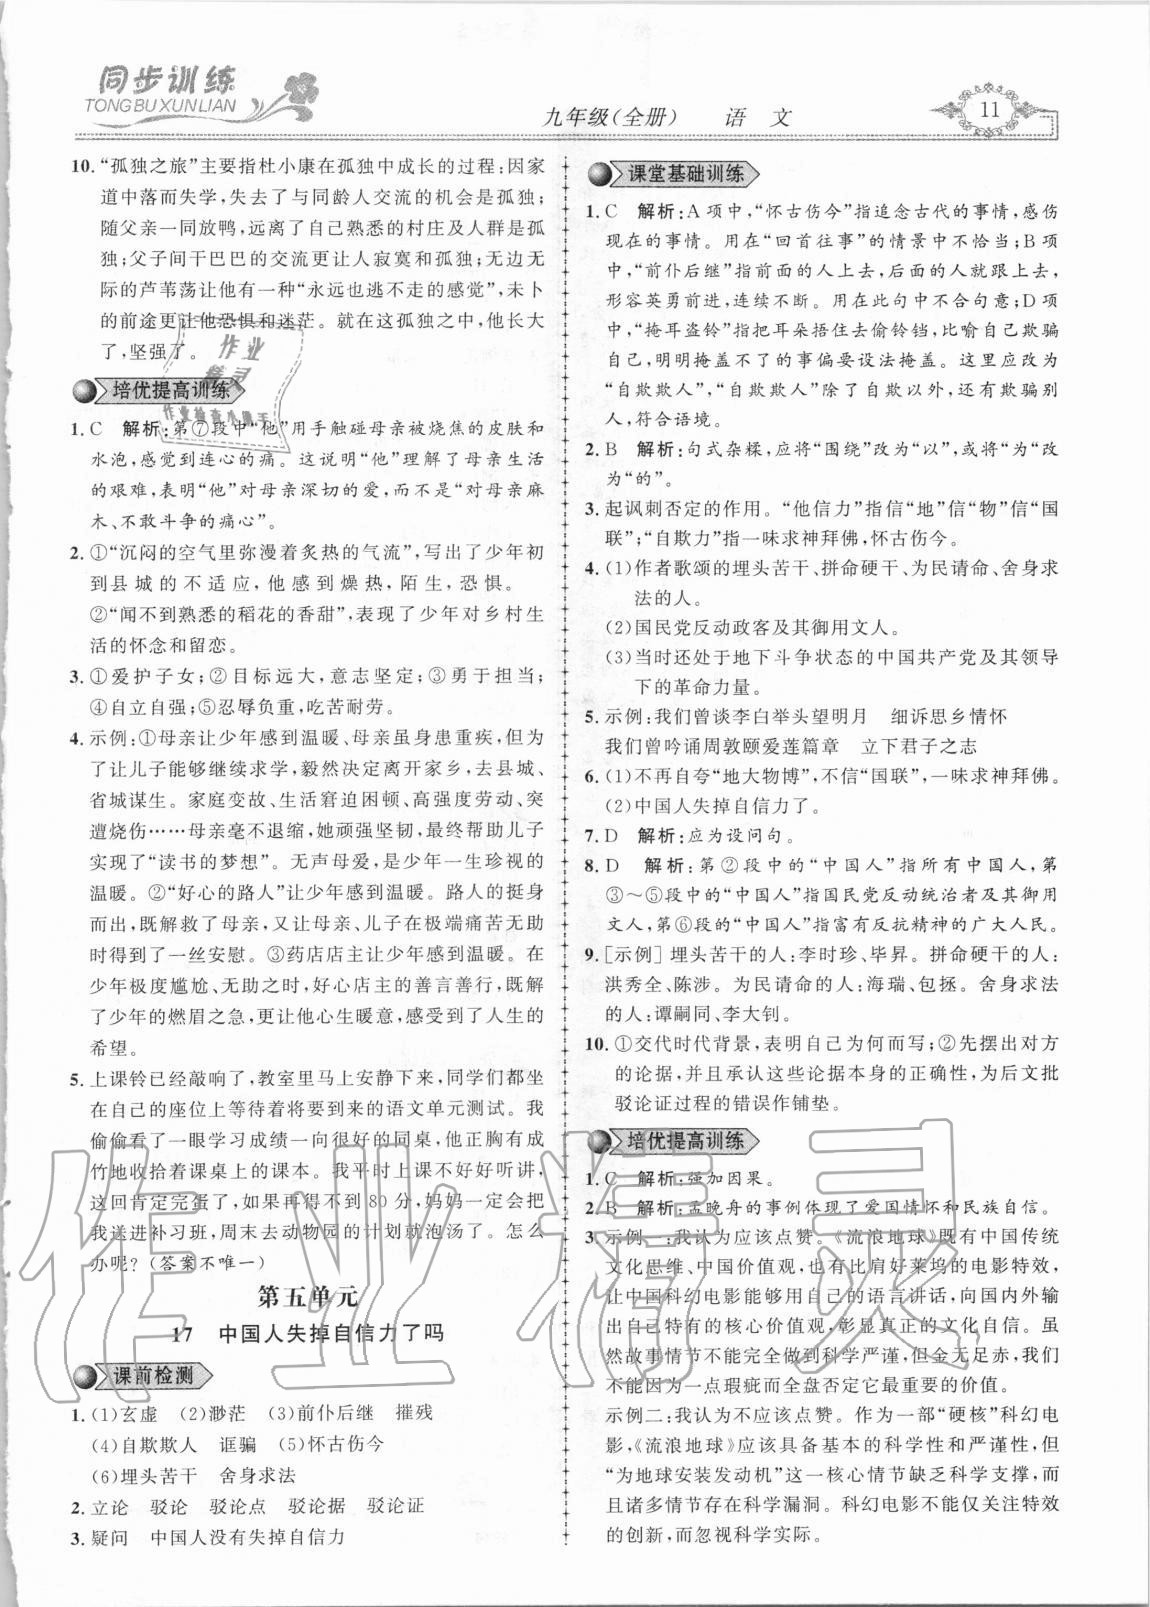 同步训练
TONGBUXUNLIAN
九年级(全册) 语 文
11
10. “孤独之旅”主要指杜小康在孤独中成长的过程:因家
道中落而失学,失去了与同龄人交流的机会是孤独;
随父亲一同放鸭,远离了自己熟悉的村庄及人群是孤
独;父子间干巴巴的交流更让人寂寞和孤独;无边无
际的芦苇荡让他有一种“永远也逃不走的感觉”,未卜
的前途更让他恐惧和迷茫。就在这孤独之中,他长大
了,坚强了。
培优提高训练
1. C 解析:第⑦段中“他”用手触碰母亲被烧焦的皮肤和
水泡,感觉到连心的痛。这说明“他”理解了母亲生活
的艰难,表明“他”对母亲深切的爱,而不是“对母亲麻
木、不敢斗争的痛心”。
2. ①“沉闷的空气里弥漫着炙热的气流”,写出了少年初
到县城的不适应,他感到燥热,陌生,恐惧。
②“闻不到熟悉的稻花的香甜”,表现了少年对乡村生
活的怀念和留恋。
3. ①爱护子女;②目标远大,意志坚定;③勇于担当;
④自立自强;⑤忍辱负重,吃苦耐劳。
4. 示例:①母亲让少年感到温暖、母亲虽身患重疾,但为
了让儿子能够继续求学,毅然决定离开家乡,去县城、
省城谋生。家庭变故、生活窘迫困顿、高强度劳动、突
遭烧伤……母亲毫不退缩,她顽强坚韧,最终帮助儿子
实现了“读书的梦想”。无声母爱,是少年一生珍视的
温暖。②“好心的路人”让少年感到温暖。路人的挺身
而出,既解救了母亲,又让母亲、儿子在极端痛苦无助
时得到了一丝安慰。③药店店主让少年感到温暖。在
少年极度尴尬、无助时,好心店主的善言善行,既缓解
了少年的燃眉之急,更让他心生暖意,感受到了人生的
希望。
5. 上课铃已经敲响了,教室里马上安静下来,同学们都坐
在自己的座位上等待着将要到来的语文单元测试。我
偷偷看了一眼学习成绩一向很好的同桌,他正胸有成
竹地收拾着课桌上的课本。我平时上课不好好听讲,
这回肯定完蛋了,如果再得不到80分,妈妈一定会把
我送进补习班,周末去动物园的计划就泡汤了。怎么
办呢?(答案不唯一)
第五单元
17 中国人失掉自信力了吗
课前检测
1. (1)玄虚 (2)渺茫 (3)前仆后继 摧残
(4)自欺欺人 诓骗 (5)怀古伤今
(6)埋头苦干 舍身求法
2. 立论 驳论 驳论点 驳论据 驳论证
3. 疑问 中国人没有失掉自信力
课堂基础训练
1. C 解析:A项中,“怀古伤今”指追念古代的事情,感伤
现在的事情。用在“回首往事”的情景中不恰当;B项
中,“前仆后继”指前面的人上去,后面的人就跟上来,
形容英勇前进,连续不断。用在此句中不合句意;D项
中,“掩耳盗铃”指把耳朵捂住去偷铃铛,比喻自己欺骗
自己,明明掩盖不了的事偏要设法掩盖。这里应改为
“自欺欺人”,“自欺欺人”除了自欺以外,还有欺骗别
人,符合语境。
2. B 解析:句式杂糅,应将“围绕”改为“以”,或将“为”改
为“的”。
3. 起讽刺否定的作用。“他信力”指信“地”信“物”信“国
联”;“自欺力”指一味求神拜佛,怀古伤今。
4. (1)作者歌颂的埋头苦干、拼命硬干、为民请命、舍身求
法的人。
(2)国民党反动政客及其御用文人。
(3)当时还处于地下斗争状态的中国共产党及其领导
下的革命力量。
5. 示例:我们曾谈李白举头望明月 细诉思乡情怀
我们曾吟诵周敦颐爱莲篇章 立下君子之志
6. (1)不再自夸“地大物博”,不信“国联”,一味求神拜佛。
(2)中国人失掉自信力了。
7. D 解析:应为设问句。
8. D 解析:第②段中的“中国人”指所有中国人,第
③~⑤段中的“中国人”指国民党反动统治者及其御用
文人,第⑥段的“中国人”指富有反抗精神的广大人民。
9. [示例]埋头苦干的人:李时珍、毕昇。拼命硬干的人:
洪秀全、陈涉。为民请命的人:海瑞、包拯。舍身求法
的人:谭嗣同、李大钊。
10. ①交代时代背景,表明自己为何而写;②先摆出对方
的论据,并且承认这些论据本身的正确性,为后文批
驳论证过程的错误作铺垫。
培优提高训练
1. C 解析:强加因果。
2. B 解析:孟晚舟的事例体现了爱国情怀和民族自信。
3. 示例一:我认为应该点赞。《流浪地球》既有中国传统
文化思维、中国价值观,也有比肩好莱坞的电影特效,
让中国科幻电影能够用自己的语言讲话,向国内外输
出自己特有的核心价值观,彰显真正的文化自信。虽
然故事情节不可能完全做到科学严谨,但金无足赤,我们
不能因为一点瑕疵而全盘否定它最重要的价值。
示例二:我认为不应该点赞。作为一部“硬核”科幻电
影,《流浪地球》应该具备基本的科学性和严谨性。但
“为地球安装发动机”这一核心情节缺乏科学支撑,而
且诸多情节存在科学漏洞。科幻电影不能仅关注特效
的创新,而忽视科学实际。
作业精灵
作业
精灵
作业检查小助手